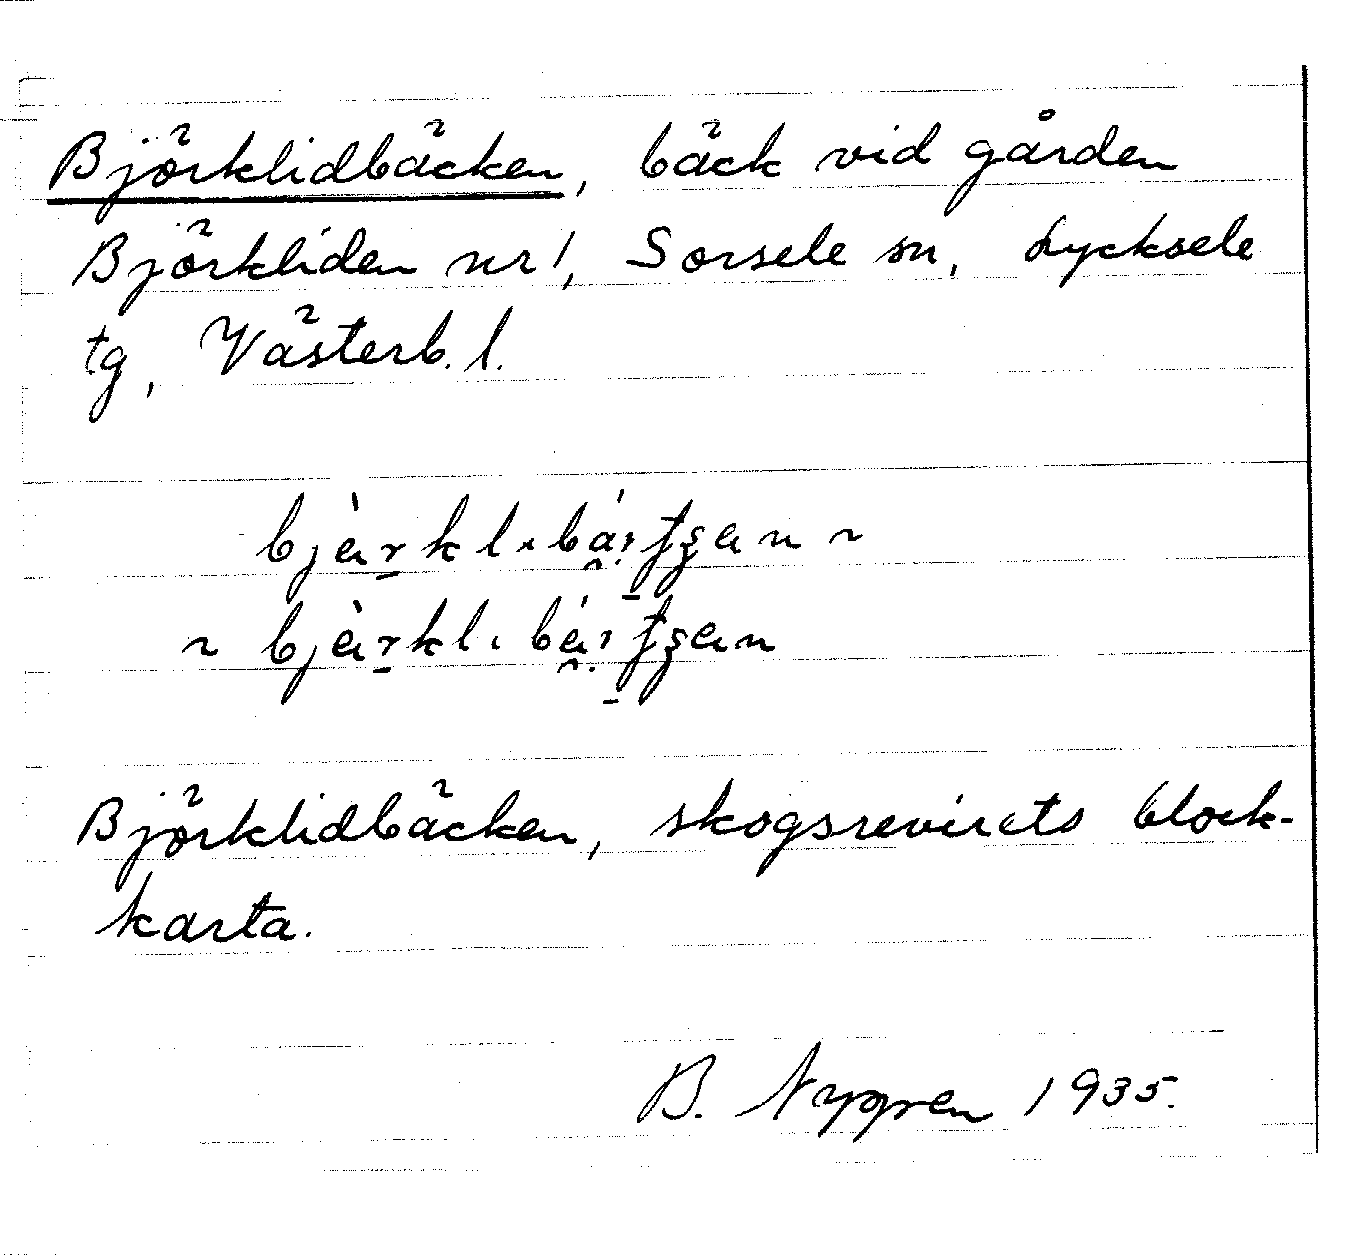 Björklidbäcken, bäck vid gården
Björkliden nr 1, Sorsele sn, Lycksele
tg, Västerb. l.
~
~
Björklidbäcken, skogsrevirets block-
karta.
B. Nygren 1935.